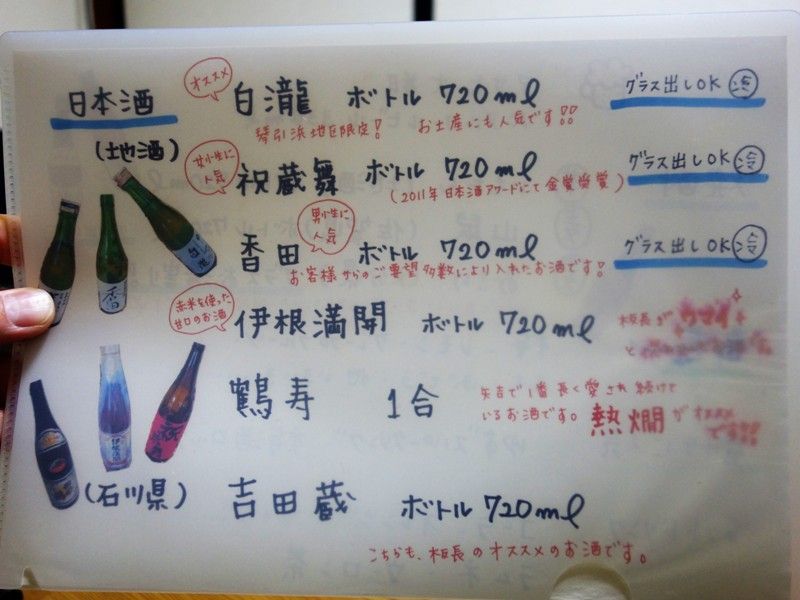 日本酒
(地酒)
オススメ
白瀧 ボトル 720ml グラス出しOK 冷
琴引浜地区限定! お土産にも人気です!!
女性に
人気
祝蔵舞 ボトル 720ml グラス出しOK 冷
(2011年日本酒アワードにて金賞受賞)
男性に
人気
香田 ボトル 720ml グラス出しOK 冷
お客様からのご要望多数により入れたお酒です!
赤米を使った
甘口のお酒
伊根満開 ボトル 720ml
板長が ウマイ
と
鶴寿 1合
矢吉で1番長く愛され続けて
いるお酒です。熱燗がオススメ
です!!!
(石川県)
吉田蔵 ボトル 720ml
こちらも、板長のオススメのお酒です。